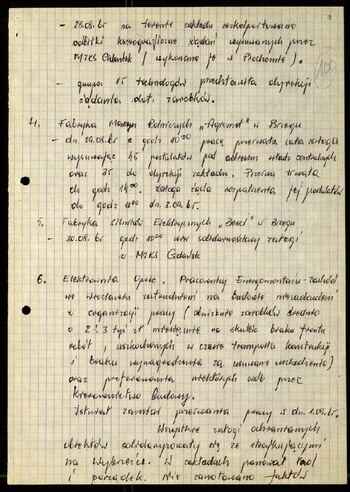 - 28.08.br na terenie zakładu rozkolportowano
odbitki kserograficzne żądań wysuwanych przez
MZKS Gdańsk / wykonano je w Pochomie).
- grupa 15 technologów przedstawiła dyrekcji
żądania dot. zarobków.
4. Fabryka Maszyn Rolniczych "Agromet" w Brzegu
- dn. 29.08.br o godz 10³⁰ pracę przerwała cała załoga
wysuwając 45 postulatów pod adresem władz centralnych
oraz 35 do dyrekcji zakładu. Przerwa trwała
do godz 14⁰⁰. Załoga żąda rozpatrzenia jej postulatów
do godz 10⁰⁰ dn. 3.09.br.
5. Fabryka Silników Elektrycznych "Besel" w Brzegu
- 30.08.br godz 10⁰⁰ wiec solidarnościowy załogi
z MZKS Gdańsk
6. Elektrownia Opole. Pracownicy Energomontażu-Zachód
we Wrocławiu zatrudnieni na budowie niezadowoleni
z organizacji pracy (obniżenie zarobków średnio
o 2 ÷ 3 tyś zł miesięcznie na skutek braku frontu
robót, uszkodzonych w czasie transportu konstrukcji
i braku wynagrodzenia za usuwanie uszkodzenia)
oraz preferowania niektórych osób przez
Kierownictwo Budowy.
Istniał zamiar przerwania pracy z dn. 1.09.br.
Wszystkie załogi odwiedzanych
obiektów solidaryzowały się ze strajkującymi
na Wybrzeżu. W zakładach panował ład
i porządek. Nie zanotowano faktów